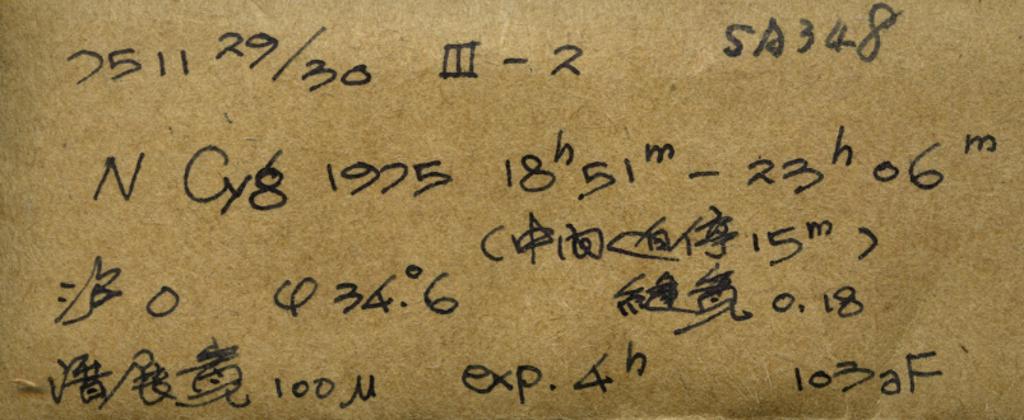 7511 29/30 III - 2 SA348
N Cyg 1975 18ʰ51ᵐ - 23ʰ06ᵐ
(中间 停 15ᵐ)
0 φ 34.°6 缝宽 0.18
展宽 100μ exp. 4ʰ 103aF